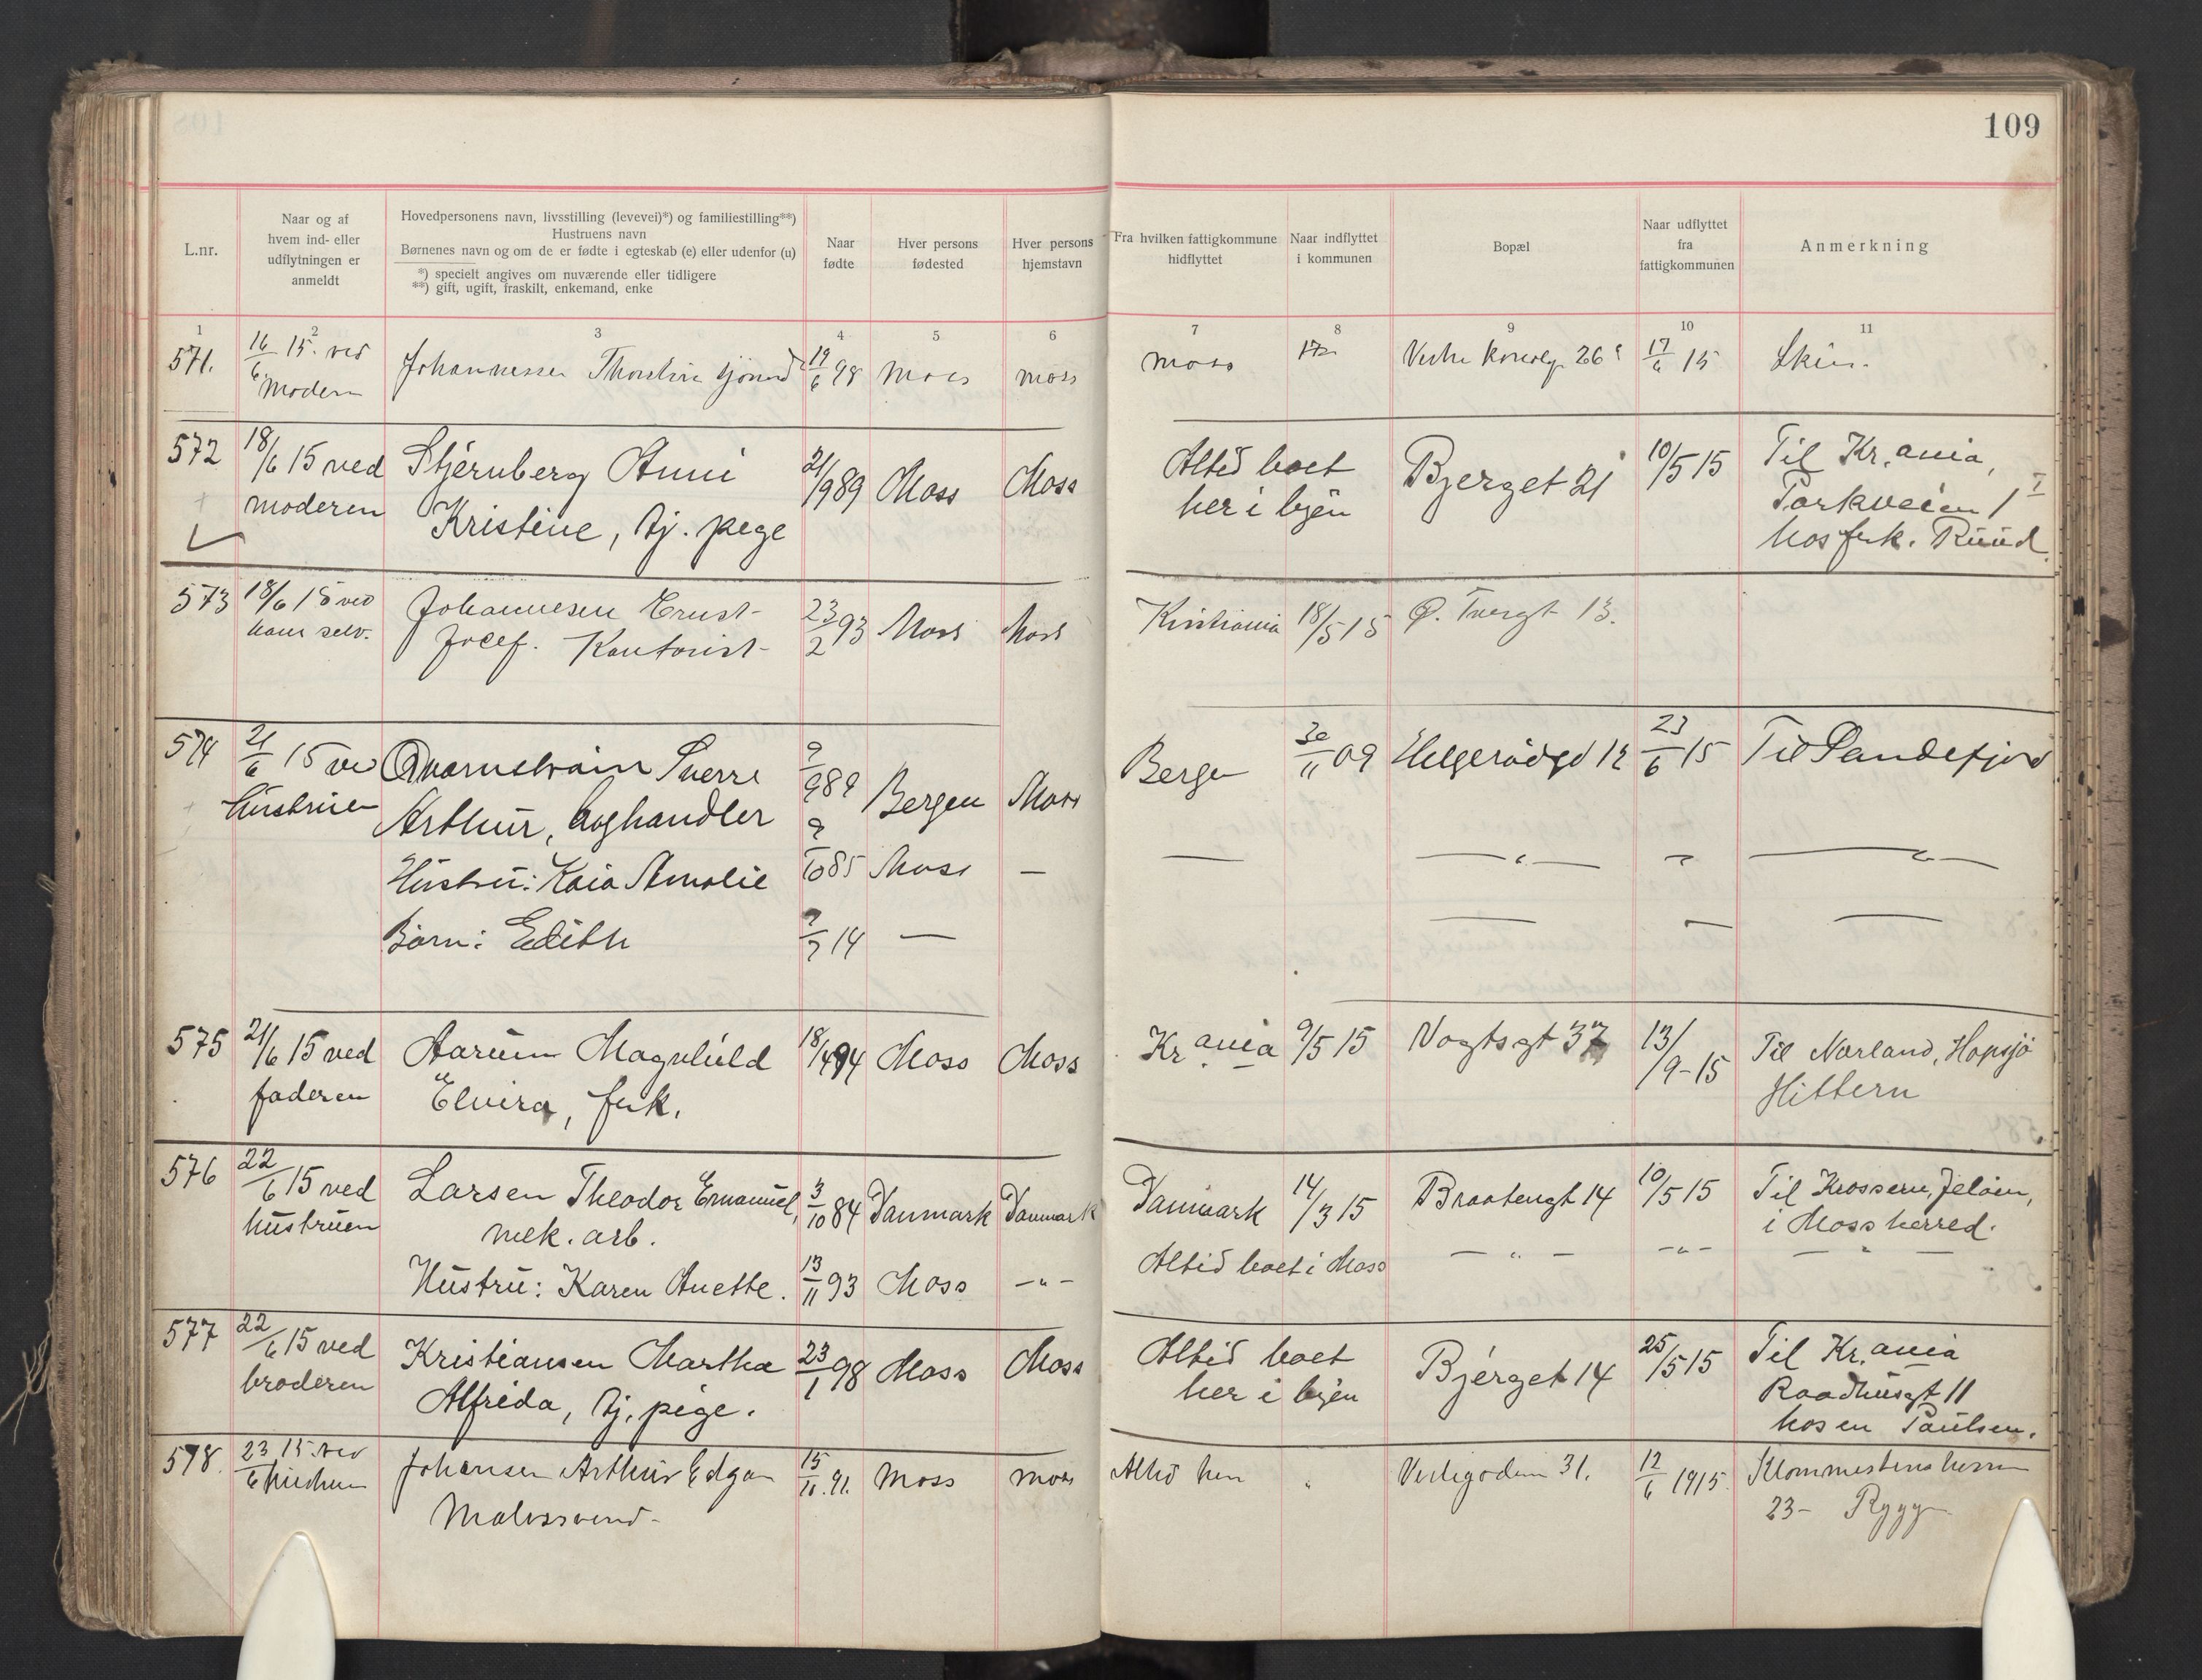 109
L.nr.
Naar og af
hvem ind- eller
udflytningen er
anmeldt
Hovedpersonens navn, livsstilling (levevei)*) og familiestilling**)
Hustruens navn
Børnenes navn og om de er fødte i egteskab (e) eller udenfor (u)
*) specielt angives om nuværende eller tidligere
**) gift, ugift, fraskilt, enkemand, enke
Naar
fødte
Hver persons
fødested
Hver persons
hjemstavn
Fra hvilken fattigkommune
hidflyttet
Naar indflyttet
i kommunen
Bopæl
Naar udflyttet
fra
fattigkommunen
Anmerkning
1 2 3 4 5 6 7 8 9 10 11
571. 16/6 15. ved Johannessen 19/6 98 Moss moss moss 17/6 15 Skien.
Modern
572 18/6 15 ved Stjernberg Anni 21/9 89 Moss Moss Altid boet Bjerget 21 10/5 15 Til Kr.ania,
moderen Kristine, tj. pege her i byen Parkveien 1 I
hos frk. Ruud
573 18/6 15 ved Johannesen Ernst 23/2 93 Moss Moss Kristiania 18/5 15 Ø. Tvergt 13.
ham selv. Josef. Kontorist
574 21/6 15 ved Sverre 9/9 89 Bergen Moss Bergen 30/11 09 12 23/6 15 Til Sandefjord
Hustruen Arthur,
Hustru: Kaia Amalie 9/10 85 Moss — — — " — " — " —
Barn: Edith 7/7 14 — — — —
575 21/6 15 ved Aarum Magnhild 18/4 94 Moss Moss Kr.ania 9/5 15 Vogtsgt 37 13/9-15 Til Norland, Hopsjø
faderen Elvira, frk. Hittern
576 22/6 15 ved Larsen Theodor Emanuel, 3/10 84 Danmark Danmark Danmark 14/3 15 Braatengt 14 10/5 15 Til Krossern, Jeløen,
hustruen mek. arb. i Moss herred.
Hustru: Karen Anette. 13/11 93 Moss -"- Altid boet i Moss — " — -"- — " —
577 22/6 15 ved Kristiansen Martha 23/1 98 Moss Moss Altid boet Bjerget 14 25/5 15 Til Kr.ania
broderen Alfrida, tj. pige. her i byen Raadhusgt 11
hos en Paulsen.
578. 23/6 15. ved Johansen Arthur Edgar 15/11. 91. Moss moss Altid her " 31. 12/6 1915.
Malersvend 23-